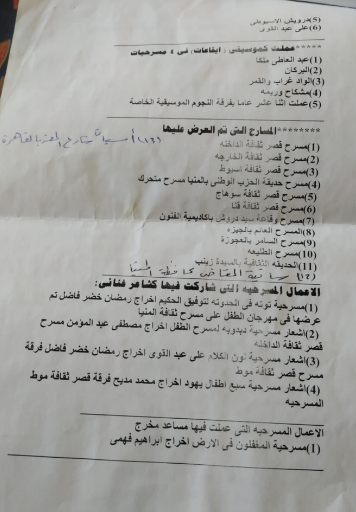 (5)درويش الاسيوطى
(6)على عبد القوى
*****عملت كموسيقى ( ايقاعات) فى 4 مسرحيات
(1)عبد العاطى متكا
(2)البركان
(3)الواد غراب والقمر
(4)مشكاح وريمه
(5)عملت اثنا عشر عاما بفرقة النجوم الموسيقية الخاصة
********المسارح التى تم العرض عليها
(1)مسرح قصر ثقافة الداخله
(2)مسرح قصر ثقافة الخارجه
(3)مسرح قصر ثقافة اسيوط
(4)مسرح حديقة الحزب الوطنى بالمنيا مسرح متحرك
(5)مسرح قصر ثقافة سوهاج
(6)مسرح قصر ثقافة قنا
(7)مسرح وقاعة سيد دروش باكاديمية الفنون
(8)المسرح العائم بالجيزه
(9)مسرح السامر بالعجوزة
(10)مسرح الطليعه
(11)الحديقه الثقافية بالسيدة زينب
(12) محافظة
(13) بالقاهرة
الاعمال المسرحيه التى شاركت فيها كشاعر غنائى:
(1)مسرحية توته فى الحدوته لتوفيق الحكيم اخراج رمضان خضر فاضل تم
عرضها فى مهرجان الطفل على مسرح قصر ثقافة المنيا
(2)اشعار مسرحية دبدوبه لمسرح الطفل اخراج مصطفى عبد المؤمن مسرح
قصر ثقافة الداخله
(3)اشعار مسرحية نون الكلام على عبد القوى اخراج رمضان خضر فاضل فرقة
مسرح قصر ثقافة موط
(4)اشعار مسرحية سبع اطفال يهود اخراج محمد مديح فرقة قصر ثقافة موط
المسرحيه
الاعمال المسرحيه التى عملت فيها مساعد مخرج
(1)مسرحية المغفلون فى الارض اخراج ابراهيم فهمى